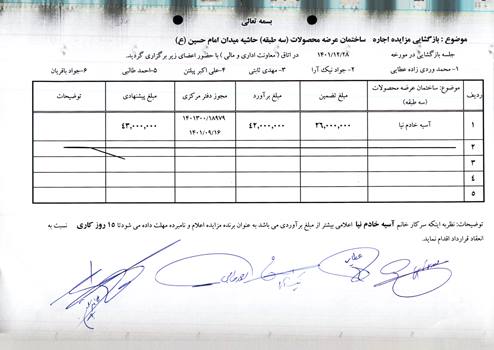 بسمه تعالی
موضوع : بازگشایی مزایده اجاره ساختمان عرضه محصولات (سه طبقه) حاشیه میدان امام حسین (ع)
جلسه بازگشایی در مورخه ۱۴۰۱/۱۲/۲۸ در اتاق (معاونت اداری و مالی) با حضور اعضای زیر برگزاری گردید.
۱- محمد وردی زاده عطایی ۲- جواد نیک آرا ۳- مهدی ثابتی ۴- علی اکبر ۵- احمد طالبی ۶- جواد باقریان
ردیف موضوع: ساختمان عرضه محصولات (سه طبقه) مبلغ تضمین مبلغ برآورد مجوز دفتر مرکزی مبلغ پیشنهادی توضیحات
۱ آسیه خادم نیا ۲۶,۰۰۰,۰۰۰ ۴۲,۰۰۰,۰۰۰ ۱۴۰۱۳۰۰/۱۸۹۷۹ ۱۴۰۱/۰۹/۱۶ ۴۳,۰۰۰,۰۰۰
۲
۳
۴
۵
توضیحات: نظربه اینکه سرکار خانم آسیه خادم نیا اعلامی بیشتر از مبلغ برآوردی می باشد به عنوان برنده مزایده اعلام و نامبرده مهلت داده می شودتا ۱۵ روز کاری نسبت به
انعقاد قرارداد اقدام نماید.